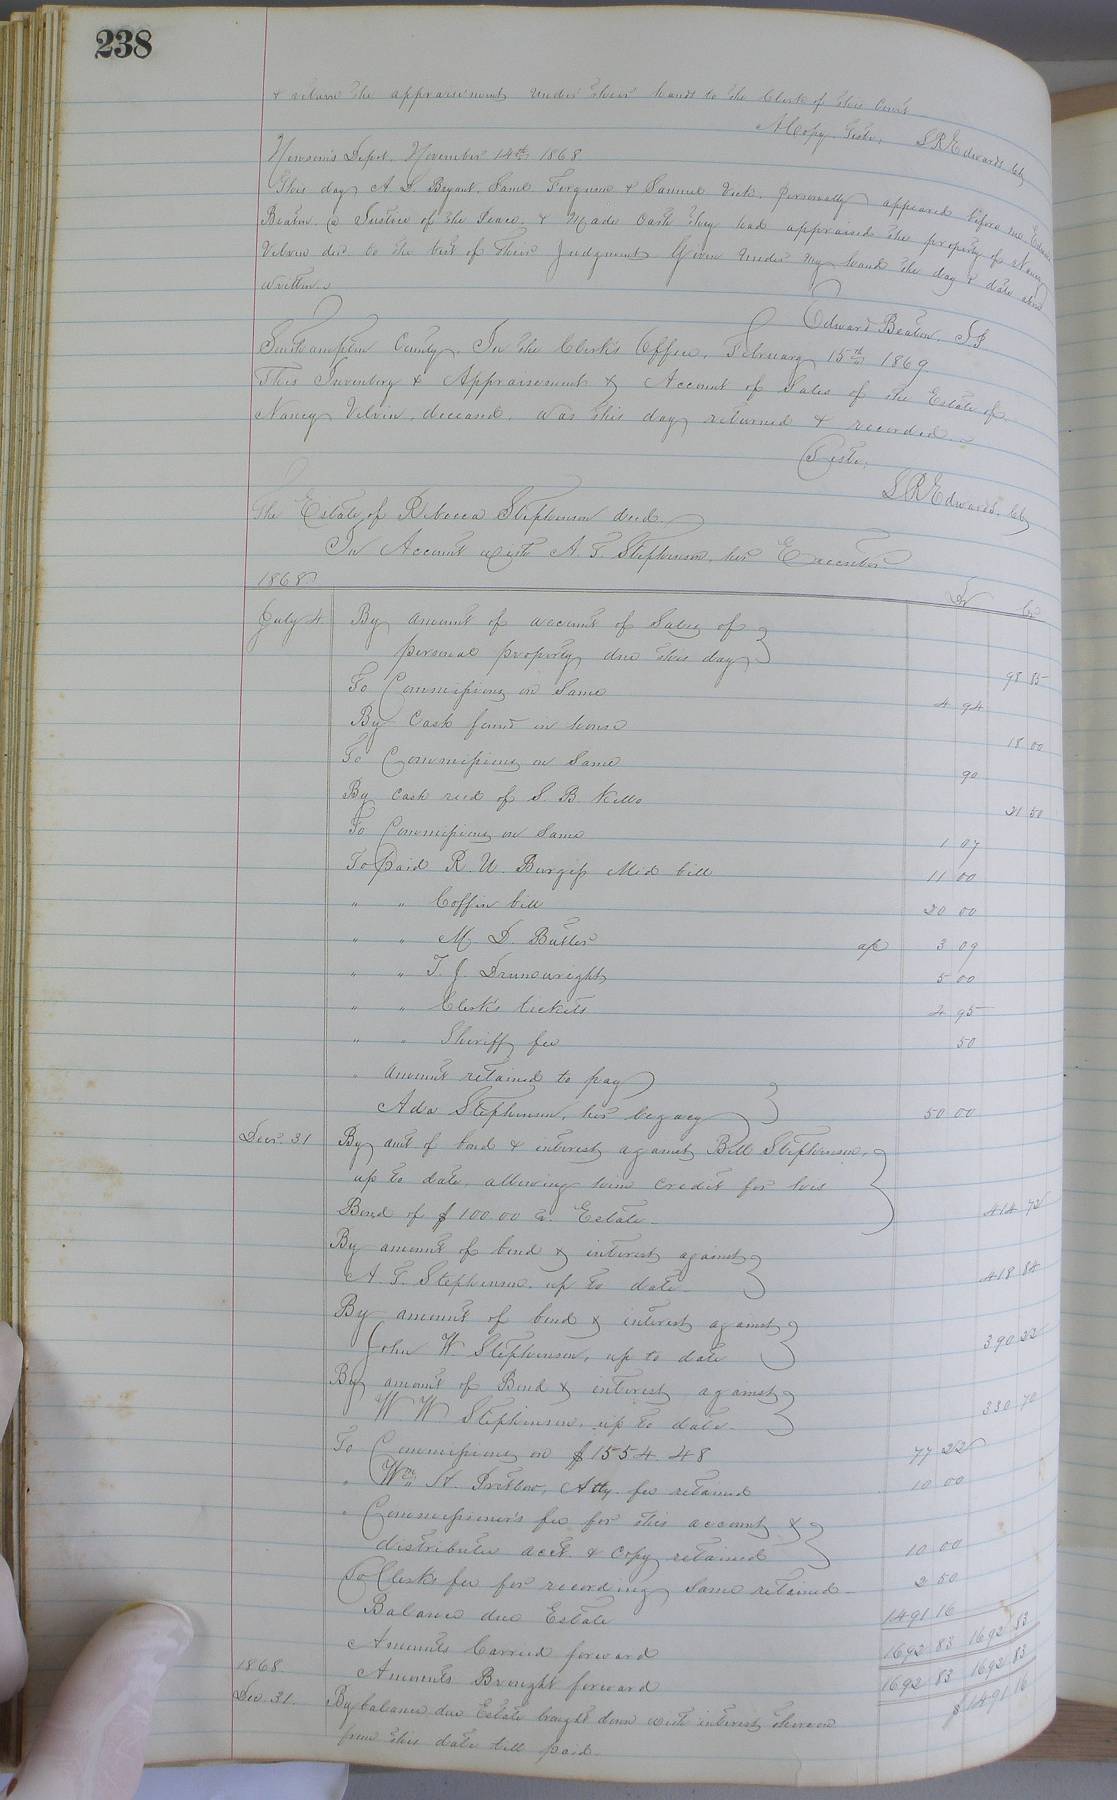 238
& return the appraisement under their hands to the Clerk of this Court
A Copy Teste, L R Edwards Clk
Newsom's Depot, November 14th 1868
This day A D. Bryant, Saml Ferguson & Samuel Vick, personally appeared before me Edward
Beaton, a Justice of the Peace, & Made oath they had appraised the property of Nancy
Velvin dec. to the best of their Judgment Given under my hand the day & date above
written.
Edward Beaton, J.P.
Southampton County. In the Clerk's Office, February 15th 1869
This Inventory & Appraisement & Account of Sales of the Estate of
Nancy Velvin, deceased, was this day returned & recorded.
Teste,
L R Edwards, Clk
The Estate of Rebecca Stephenson decd.
In Account with A. T. Stephenson, her Executor
1868 Dr Cr
July 4 By amount of account of Sales of
personal property due this day 98 85
To Commissions on Same 4 94
By Cash found in house 18 00
To Commissions on Same 90
By Cash recd of S. B. Kello 21 50
To Commissions on Same 1 07
To Paid R. U. Burgess Med bill 11 00
" " Coffin bill 20 00
" " M. D. Butler a/c 3 09
" " T. J. Drunwright 5 00
" " Clerk's tickets 4 95
" " Sheriff fee 50
" Amount retained to pay
Ada Stephenson, her legacy 50 00
Decr. 31 By amt of bond & interest against Bill Stephenson,
up to date, allowing him credit for his
Bond of $100.00 vs. Estate 414 72
By amount of bond & interest against
A. T. Stephenson, up to date 418 84
By amount of bond & interest against
John W. Stephenson, up to date 390 22
By amount of Bond & interest against
W W Stephenson, up to date 330 70
To Commissions on $1554.48 77 22
" Wm. H. Pretlow, Atty. fee retained 10 00
" Commissioner's fee for this account &
distributive acct. & Copy retained 10 00
To Clerks fee for recording same retained 2 50
Balance due Estate 1491 16
Amounts Carried forward 1692 83 1692 83
1868. Amounts Brought forward 1692 83 1692 83
Dec. 31. By balance due Estate brought down with interest thereon $1491 16
from this date till paid.